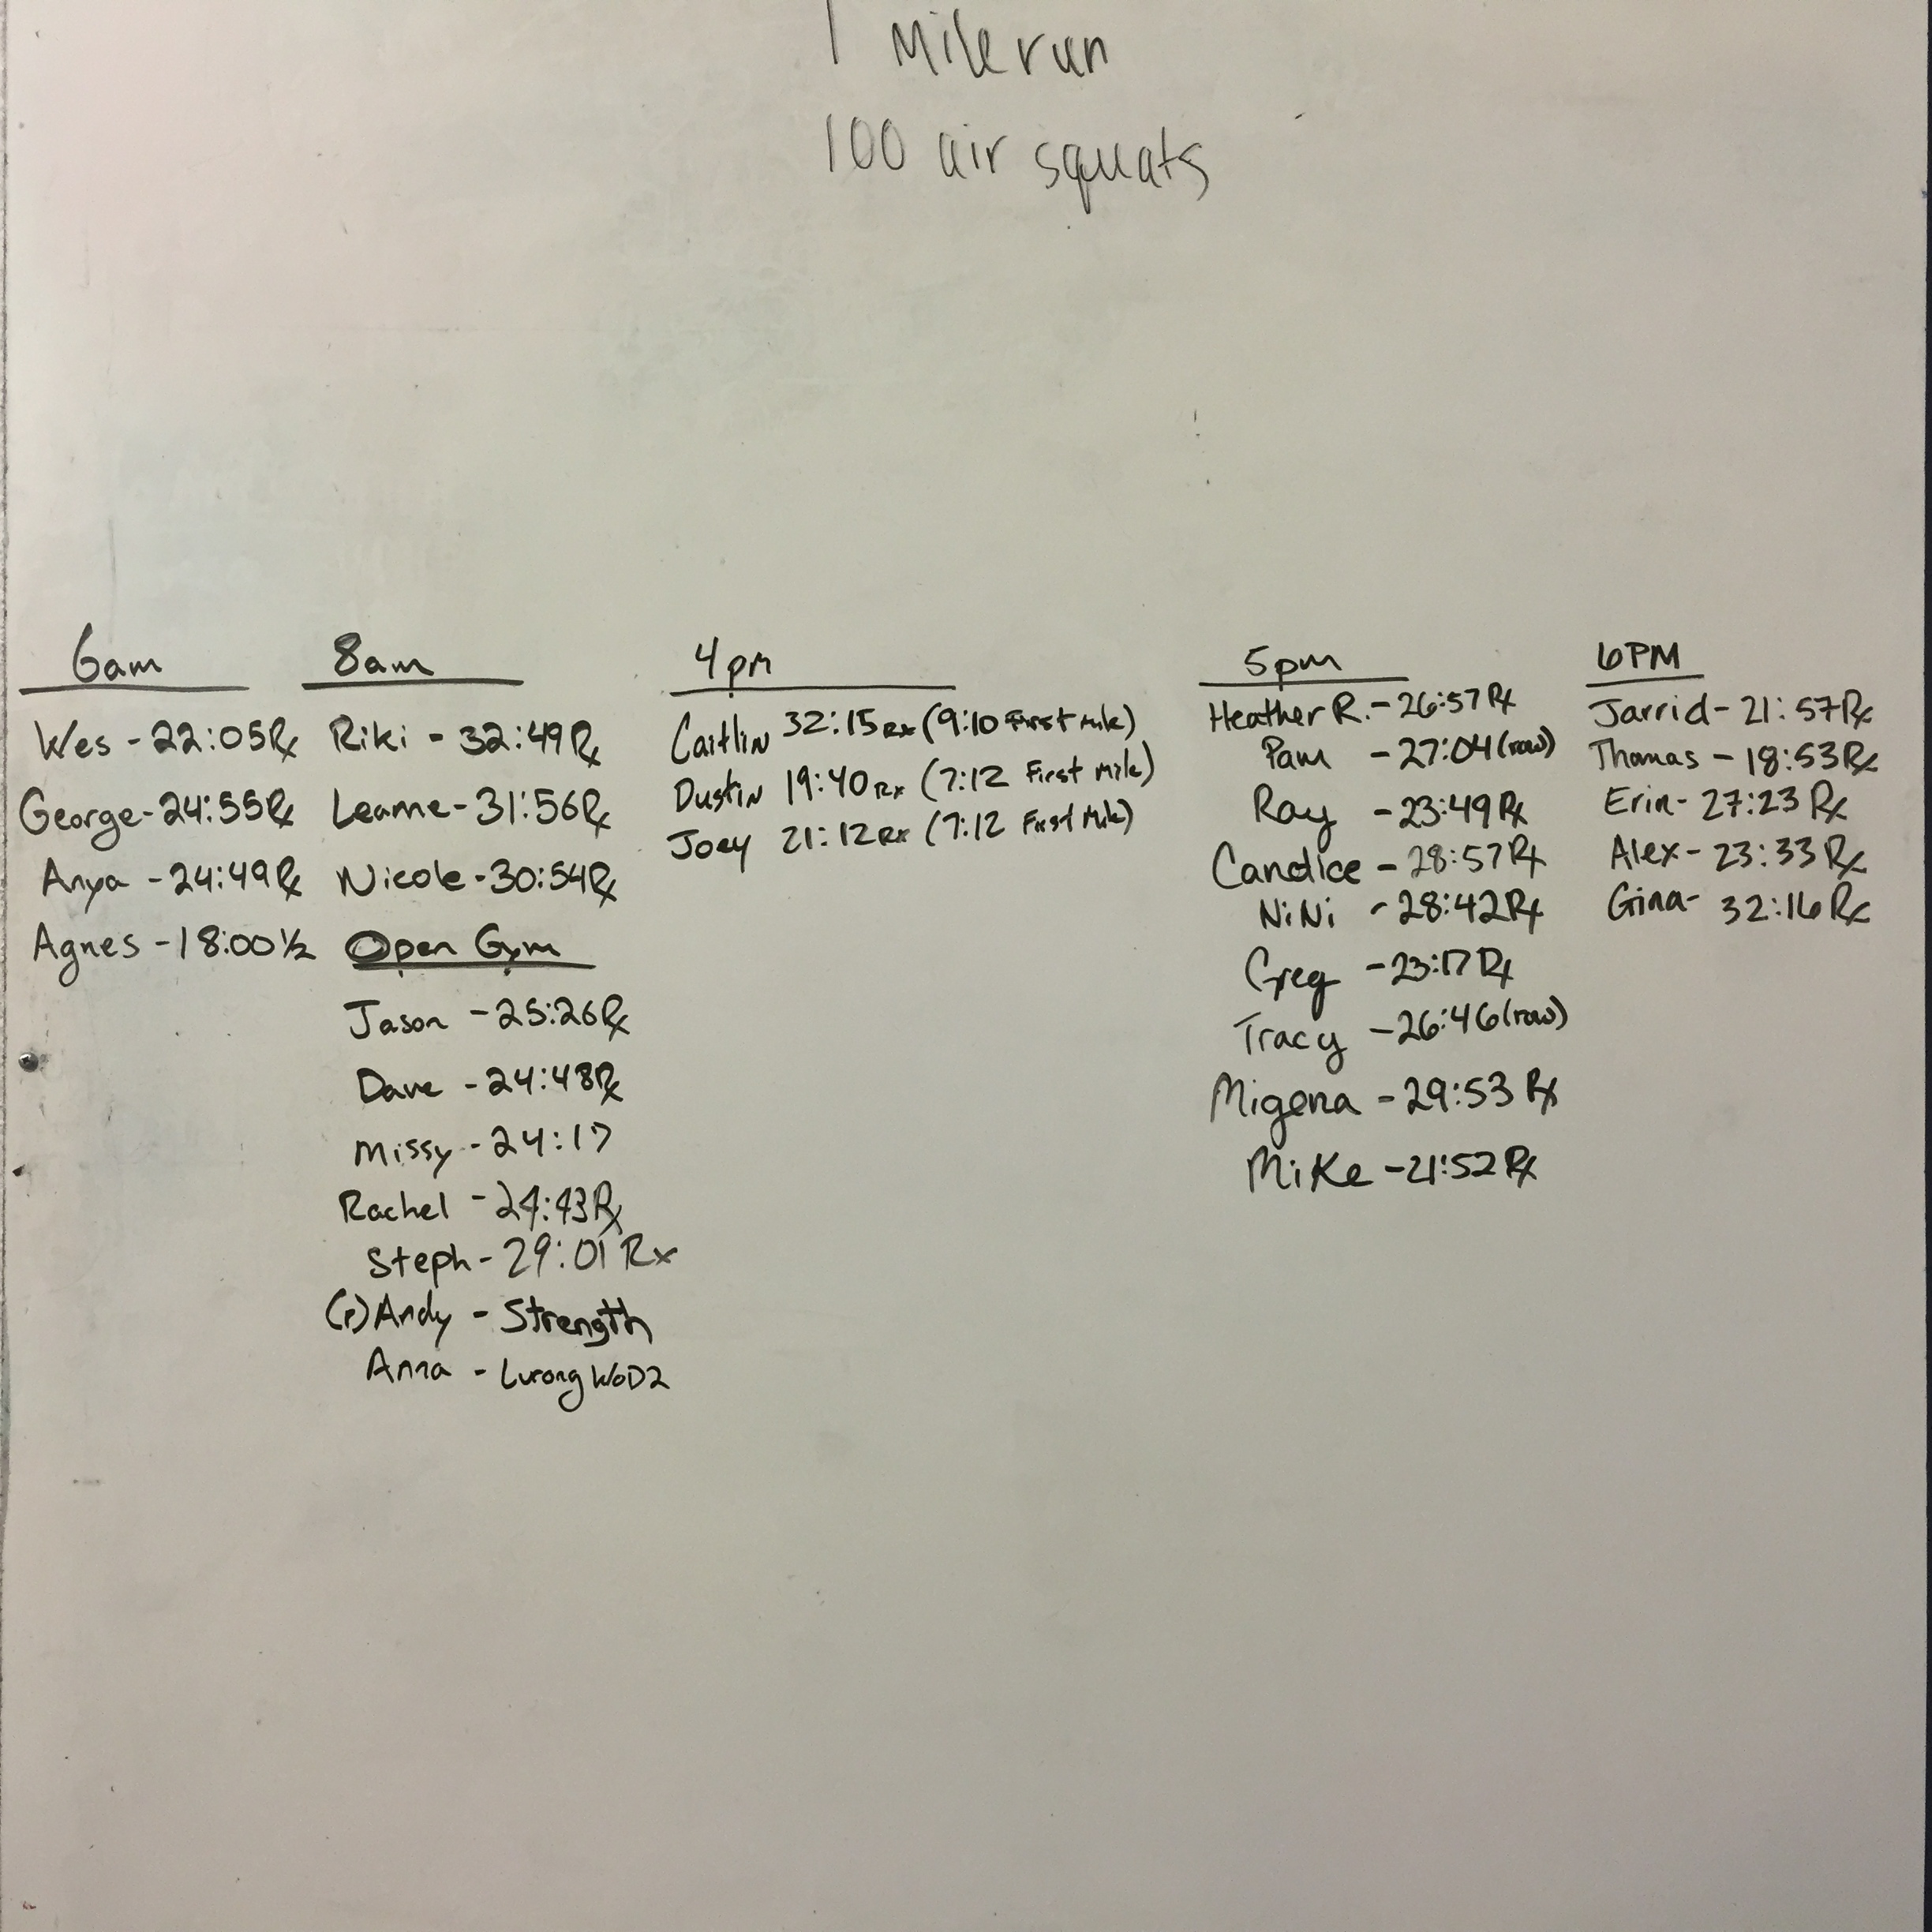 1 Mile run
100 air squats
6am
Wes - 22:05 Rx
George - 24:55 Rx
Anya - 24:49 Rx
Agnes - 18:00 1/2
8am
Riki - 32:49 Rx
Leanne - 31:56 Rx
Nicole - 30:54 Rx
Open Gym
Jason - 25:26 Rx
Dave - 24:48 Rx
Missy - 24:17
Rachel - 24:43 Rx
Steph - 29:01 Rx
Andy - Strength
Anna - Lurong WOD2
4pm
Caitlin 32:15 Rx (9:10 First Mile)
Dustin 19:40 Rx (7:12 First Mile)
Joey 21:12 Rx (7:12 First Mile)
5pm
Heather R. - 26:57 Rx
Pam - 27:04 (row)
Ray - 23:49 Rx
Candice - 28:57 Rx
NiNi - 28:42 Rx
Greg - 23:17 Rx
Tracy - 26:46 (row)
Migena - 29:53 Rx
Mike - 21:52 Rx
6PM
Jarrid - 21:57 Rx
Thomas - 18:53 Rx
Erin - 27:23 Rx
Alex - 23:33 Rx
Gina - 32:16 Rx